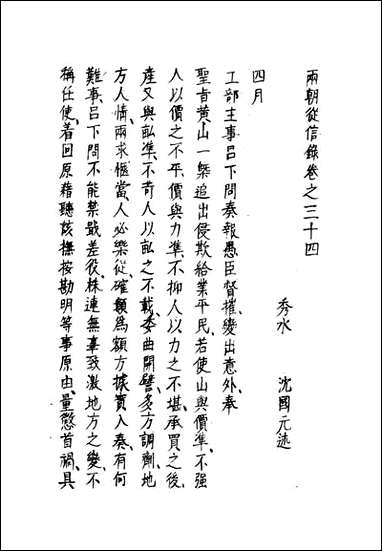 兩朝從信錄卷之三十四
秀水 沈國元述
四月
工部主事呂下問奏報愚臣督摧變出意外、奉
聖旨黄山一槩追出侵欺給業平民、若使山與價準、不强
人以價之不平、價與力準、不抑人以力之不堪、承買之後、
產又與訟準、不苛人以訟之不載、委曲開譬、多方調劑、地
方人情、兩求愜當、人必樂從、確額爲額方據實入奏、有何
難事、呂下問不能禁戢差役、株連無辜致激地方之變、不
稱任使、着回原藉聽該撫按勘明等事原由、量懲首禍、具